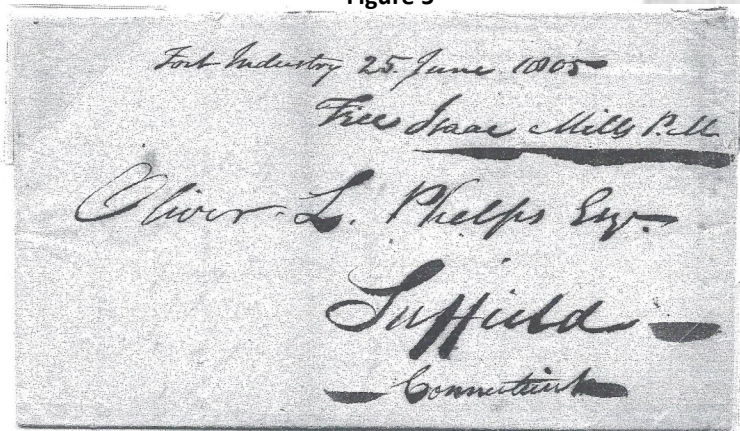 Figure 5
Fort Industry 25 June 1805
Free Isaac Mills P.M.
Oliver L. Phelps Esqr.
Suffield
Connecticut